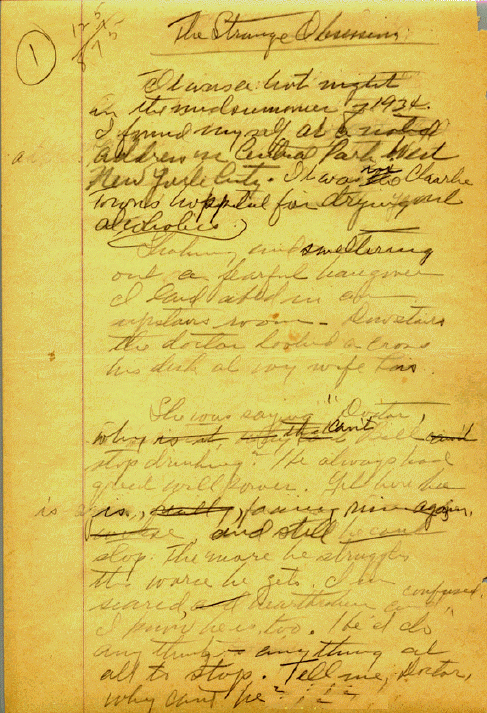 1
The Strange Obsession
It was a hot night
in the midsummer of 1934.
I found myself at a noted
address in Central Park West
New York City. It was the Charlie
Towns hospital for drying out
alcoholics.
Shaken, and sweltering
out a fearful hangover
I laid abed in an
upstairs room. Downstairs
the doctor looked across
his desk at my wife Lois.
She was saying "Doctor,
why can't Bill
stop drinking? He always had
great will power. Yet here he
is, facing ruin again,
and still he can't
stop. The more he struggles
the worse he gets. I'm
scared, heartbroken and confused.
I know he is, too. He'd do
anything – anything at
all to stop. Tell me, Doctor,
why can't he?